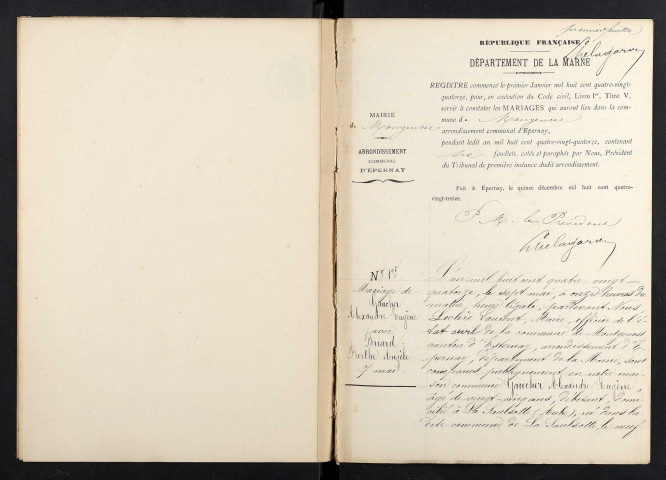 premier feuillet
RÉPUBLIQUE FRANÇAISE
DÉPARTEMENT DE LA MARNE
REGISTRE commencé le premier Janvier mil huit cent quatre-vingt-
quatorze, pour, en exécution du Code civil, Livre Ier, Titre V,
servir à constater les MARIAGES qui auront lieu dans la com-
mune de
arrondissement communal d'Epernay,
pendant ledit an mil huit cent quatre-vingt-quatorze, contenant
six feuillets, cotés et paraphés par Nous, Président
du Tribunal de première instance dudit arrondissement.
Fait à Epernay, le quinze décembre mil huit cent quatre-
vingt-treize.
P. M. le Président
MAIRIE
de
ARRONDISSEMENT
COMMUNAL
D'ÉPERNAY
No 1er
Mariage de
Gaucher
Alexandre Eugène
avec
Briard
Berthe Angèle
7 mai
L'an mil huit cent quatre vingt-
quatorze, le sept mai, à onze heures du
matin, heure légale, pardevant Nous,
Leclère Laurent, Maire, officier de l'é-
tat civil de la commune de
canton d'Esternay, arrondissement d'E-
pernay, département de la Marne, sont
comparus publiquement en notre mai-
son commune Gaucher Alexandre Eugène,
âgé de vingt-cinq ans, domi-
cilié à La Saulsotte (Aube), né dans la
dite commune de La Saulsotte, le neuf